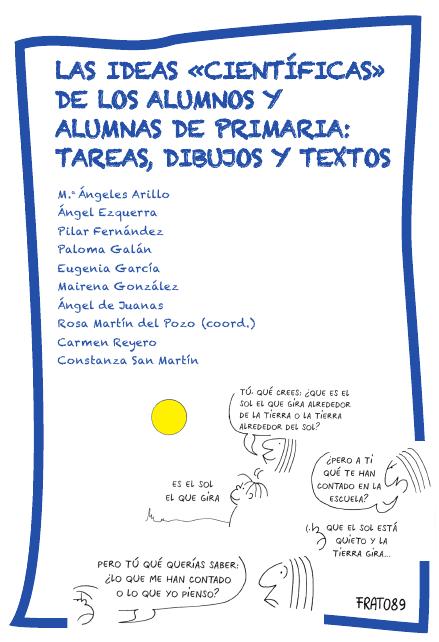 LAS IDEAS «CIENTÍFICAS»
DE LOS ALUMNOS Y
ALUMNAS DE PRIMARIA:
TAREAS, DIBUJOS Y TEXTOS
M.ª Ángeles Arillo
Ángel Ezquerra
Pilar Fernández
Paloma Galán
Eugenia García
Mairena González
Ángel de Juanas
Rosa Martín del Pozo (coord.)
Carmen Reyero
Constanza San Martín
TÚ, QUÉ CREES: ¿QUE ES EL
SOL EL QUE GIRA ALREDEDOR
DE LA TIERRA O LA TIERRA
ALREDEDOR DEL SOL?
ES EL SOL
EL QUE GIRA
¿PERO A TI
QUÉ TE HAN
CONTADO EN LA
ESCUELA?
QUE EL SOL ESTÁ
QUIETO Y LA
TIERRA GIRA...
PERO TÚ QUÉ QUERÍAS SABER:
¿LO QUE ME HAN CONTADO
O LO QUE YO PIENSO?
FRATO89